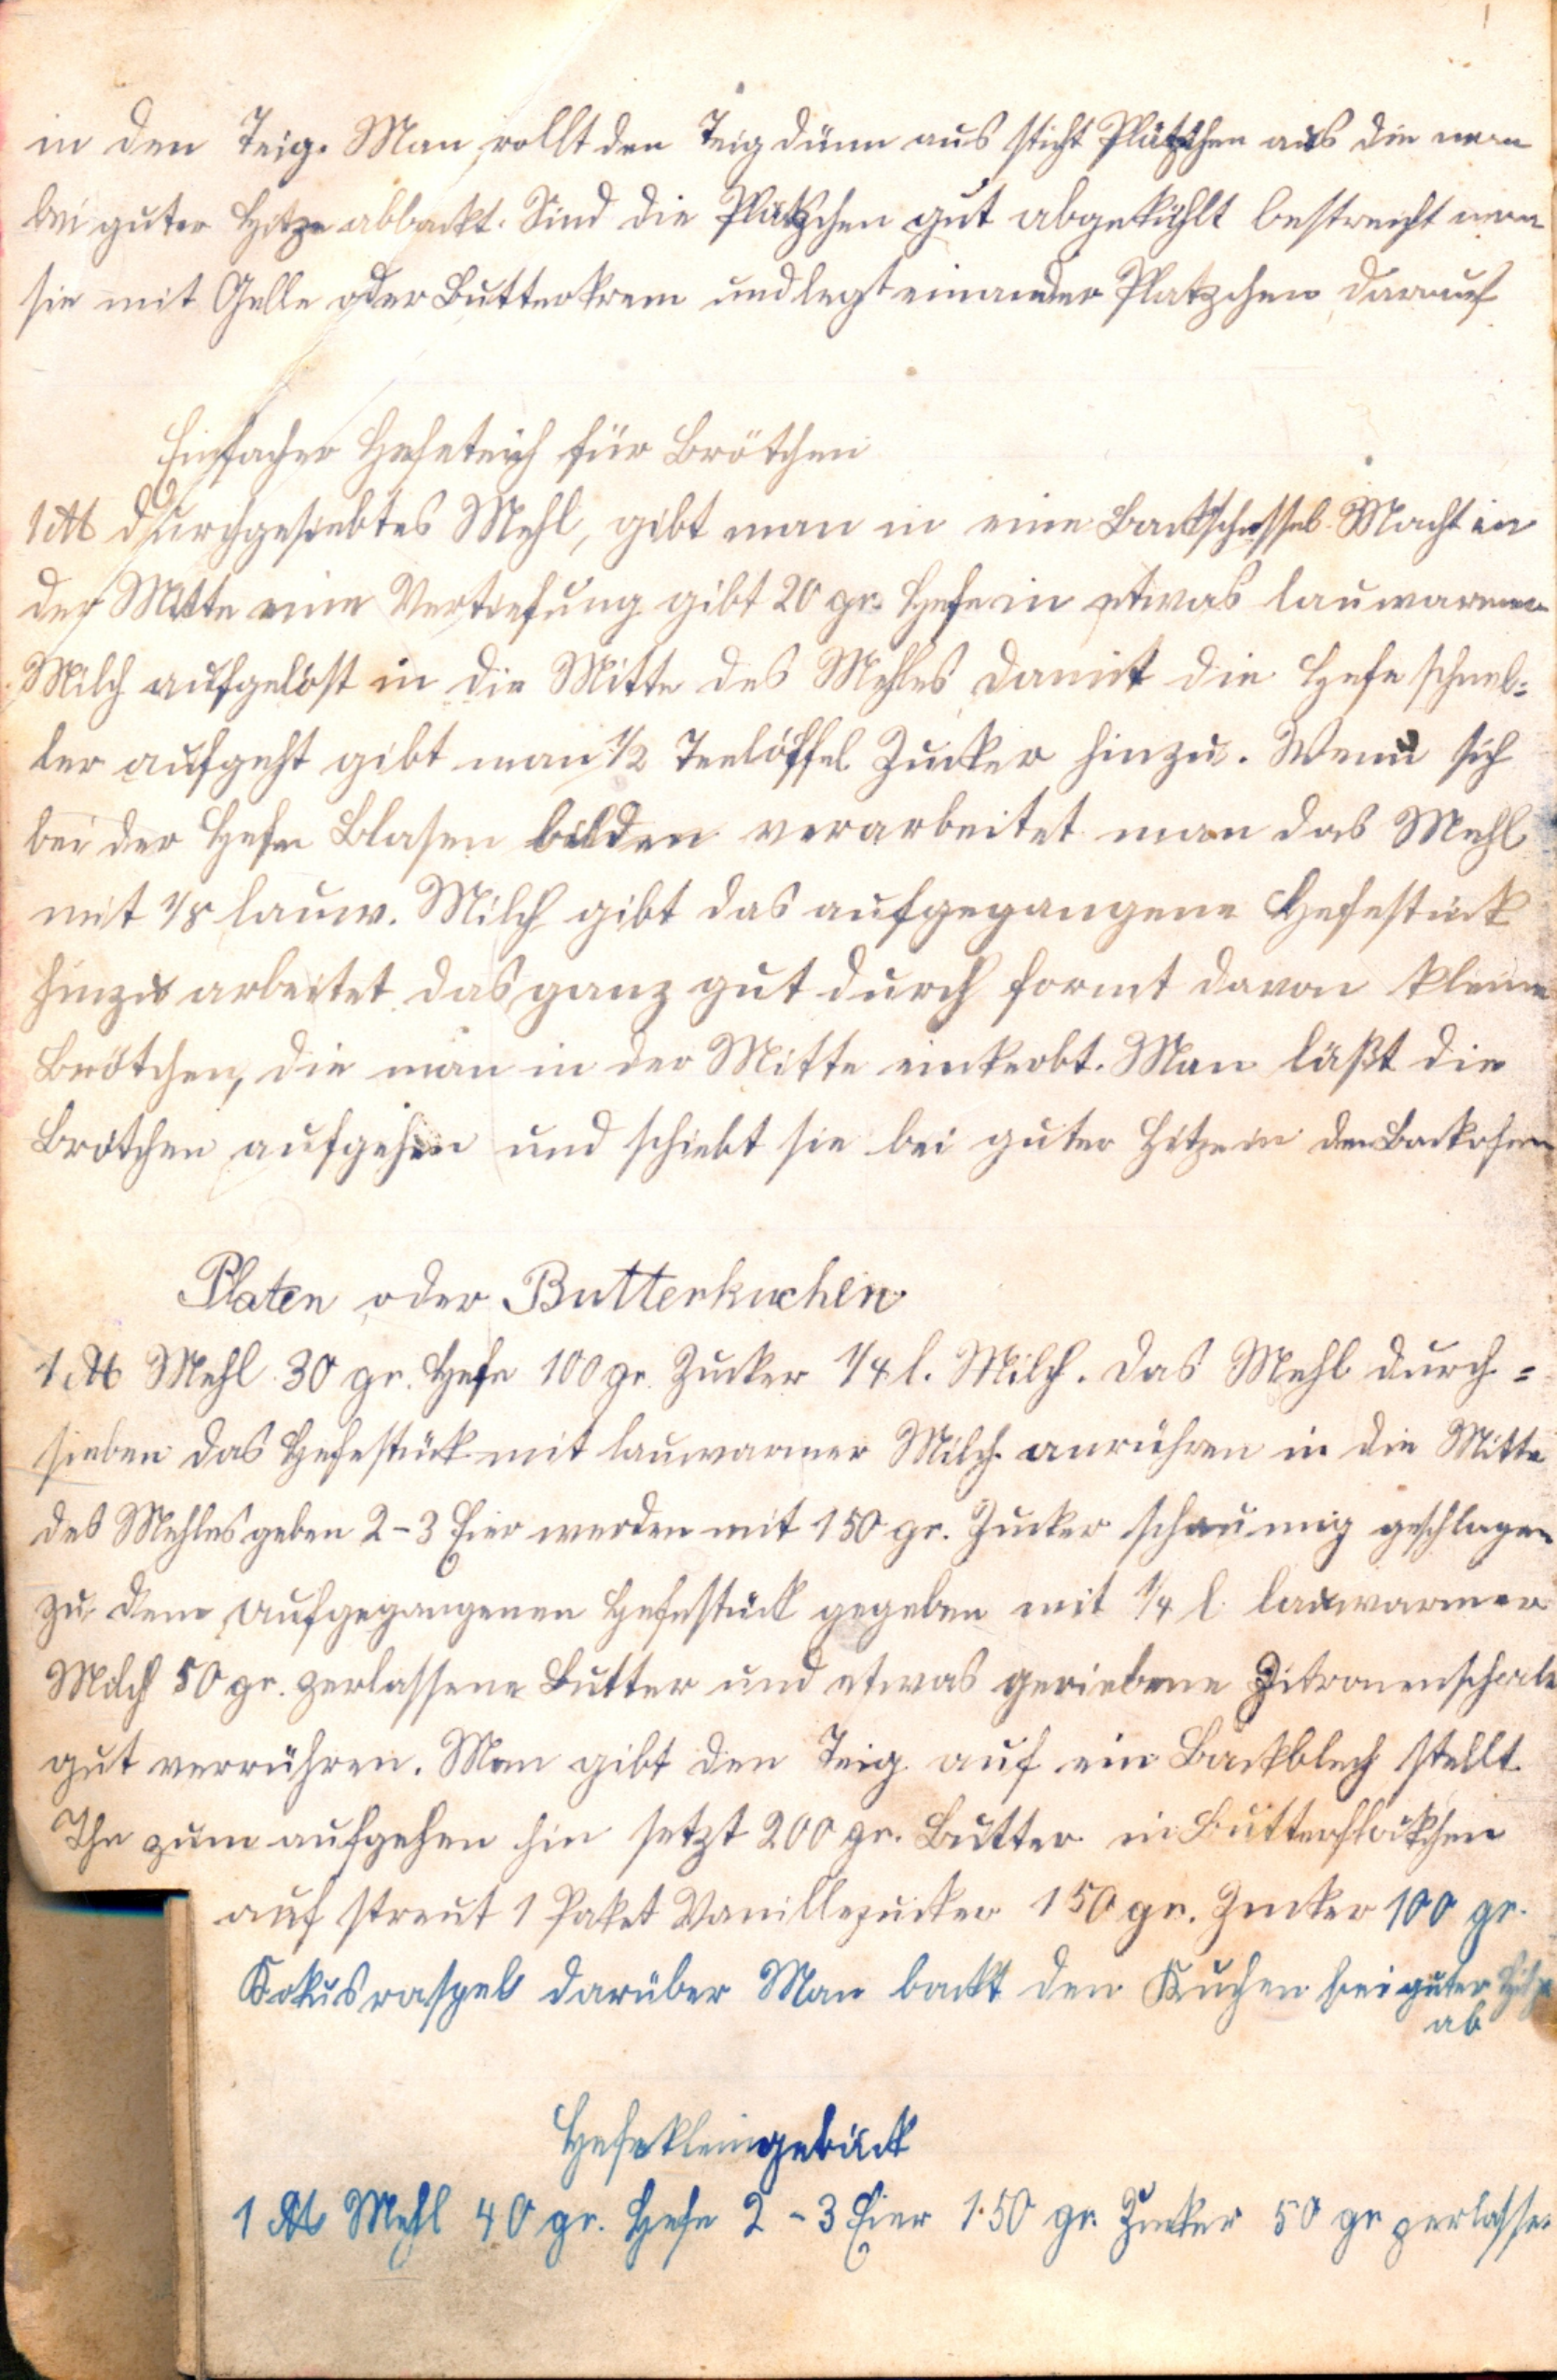 in den Teig. Man rollt den Teig dünn aus sticht Plätzchen aus die man
bei guter Hitze abbackt. Sind die Plätzchen gut abgekühlt bestreicht man
sie mit Gelle oder Butterkrem und legt einander Platzchen darauf
Einfacher Hefeteich für Brötchen
1 ℔ durchgesiebtes Mehl, gibt man in eine Backschüssel Macht in
der Mitte eine Vertiefung gibt 20 gr. Hefe in etwas lauwarmer
Milch aufgelöst in die Mitte des Mehles damit die Hefe schnel=
ler aufgeht gibt man 1/2 Teelöffel Zucker hinzu. Wenn sich
bei der Hefe Blasen bilden verarbeitet man das Mehl
mit 1/8 lauw. Milch gibt das aufgegangene Hefestück
hinzu arbeitet das ganz gut durch formt davon kleine
Brötchen, die man in der Mitte einkerbt. Man läßt die
Brötchen aufgehen und schiebt sie bei guter Hitze in den Backofen
Platen oder Butterkuchen
1 ℔ Mehl 30 gr. Hefe 100 gr. Zucker 1/4 l. Milch. Das Mehl durch=
sieben das Hefestück mit lauwarmer Milch anrühren in die Mitte
des Mehles geben 2-3 Eier werden mit 150 gr. Zucker schaumig geschlagen
zu dem aufgegangenen Hefestück gegeben mit 1/4 l. lauwarmer
Milch 50 gr. zerlassene Butter und etwas geriebene Zitronenschale
gut verrühren. Man gibt den Teig auf ein Backblech stellt
Ihn zum aufgehen hin setzt 200 gr. Butter in Butterflöckchen
auf streut 1 Paket Vanillezucker 150 gr. Zucker 100 gr.
Kokusraspel darüber Man backt den Kuchen bei guter Hitze
ab
Hefekleingebäck
1 ℔ Mehl 40 gr. Hefe 2-3 Eier 150 gr. Zucker 50 gr zerlasse-